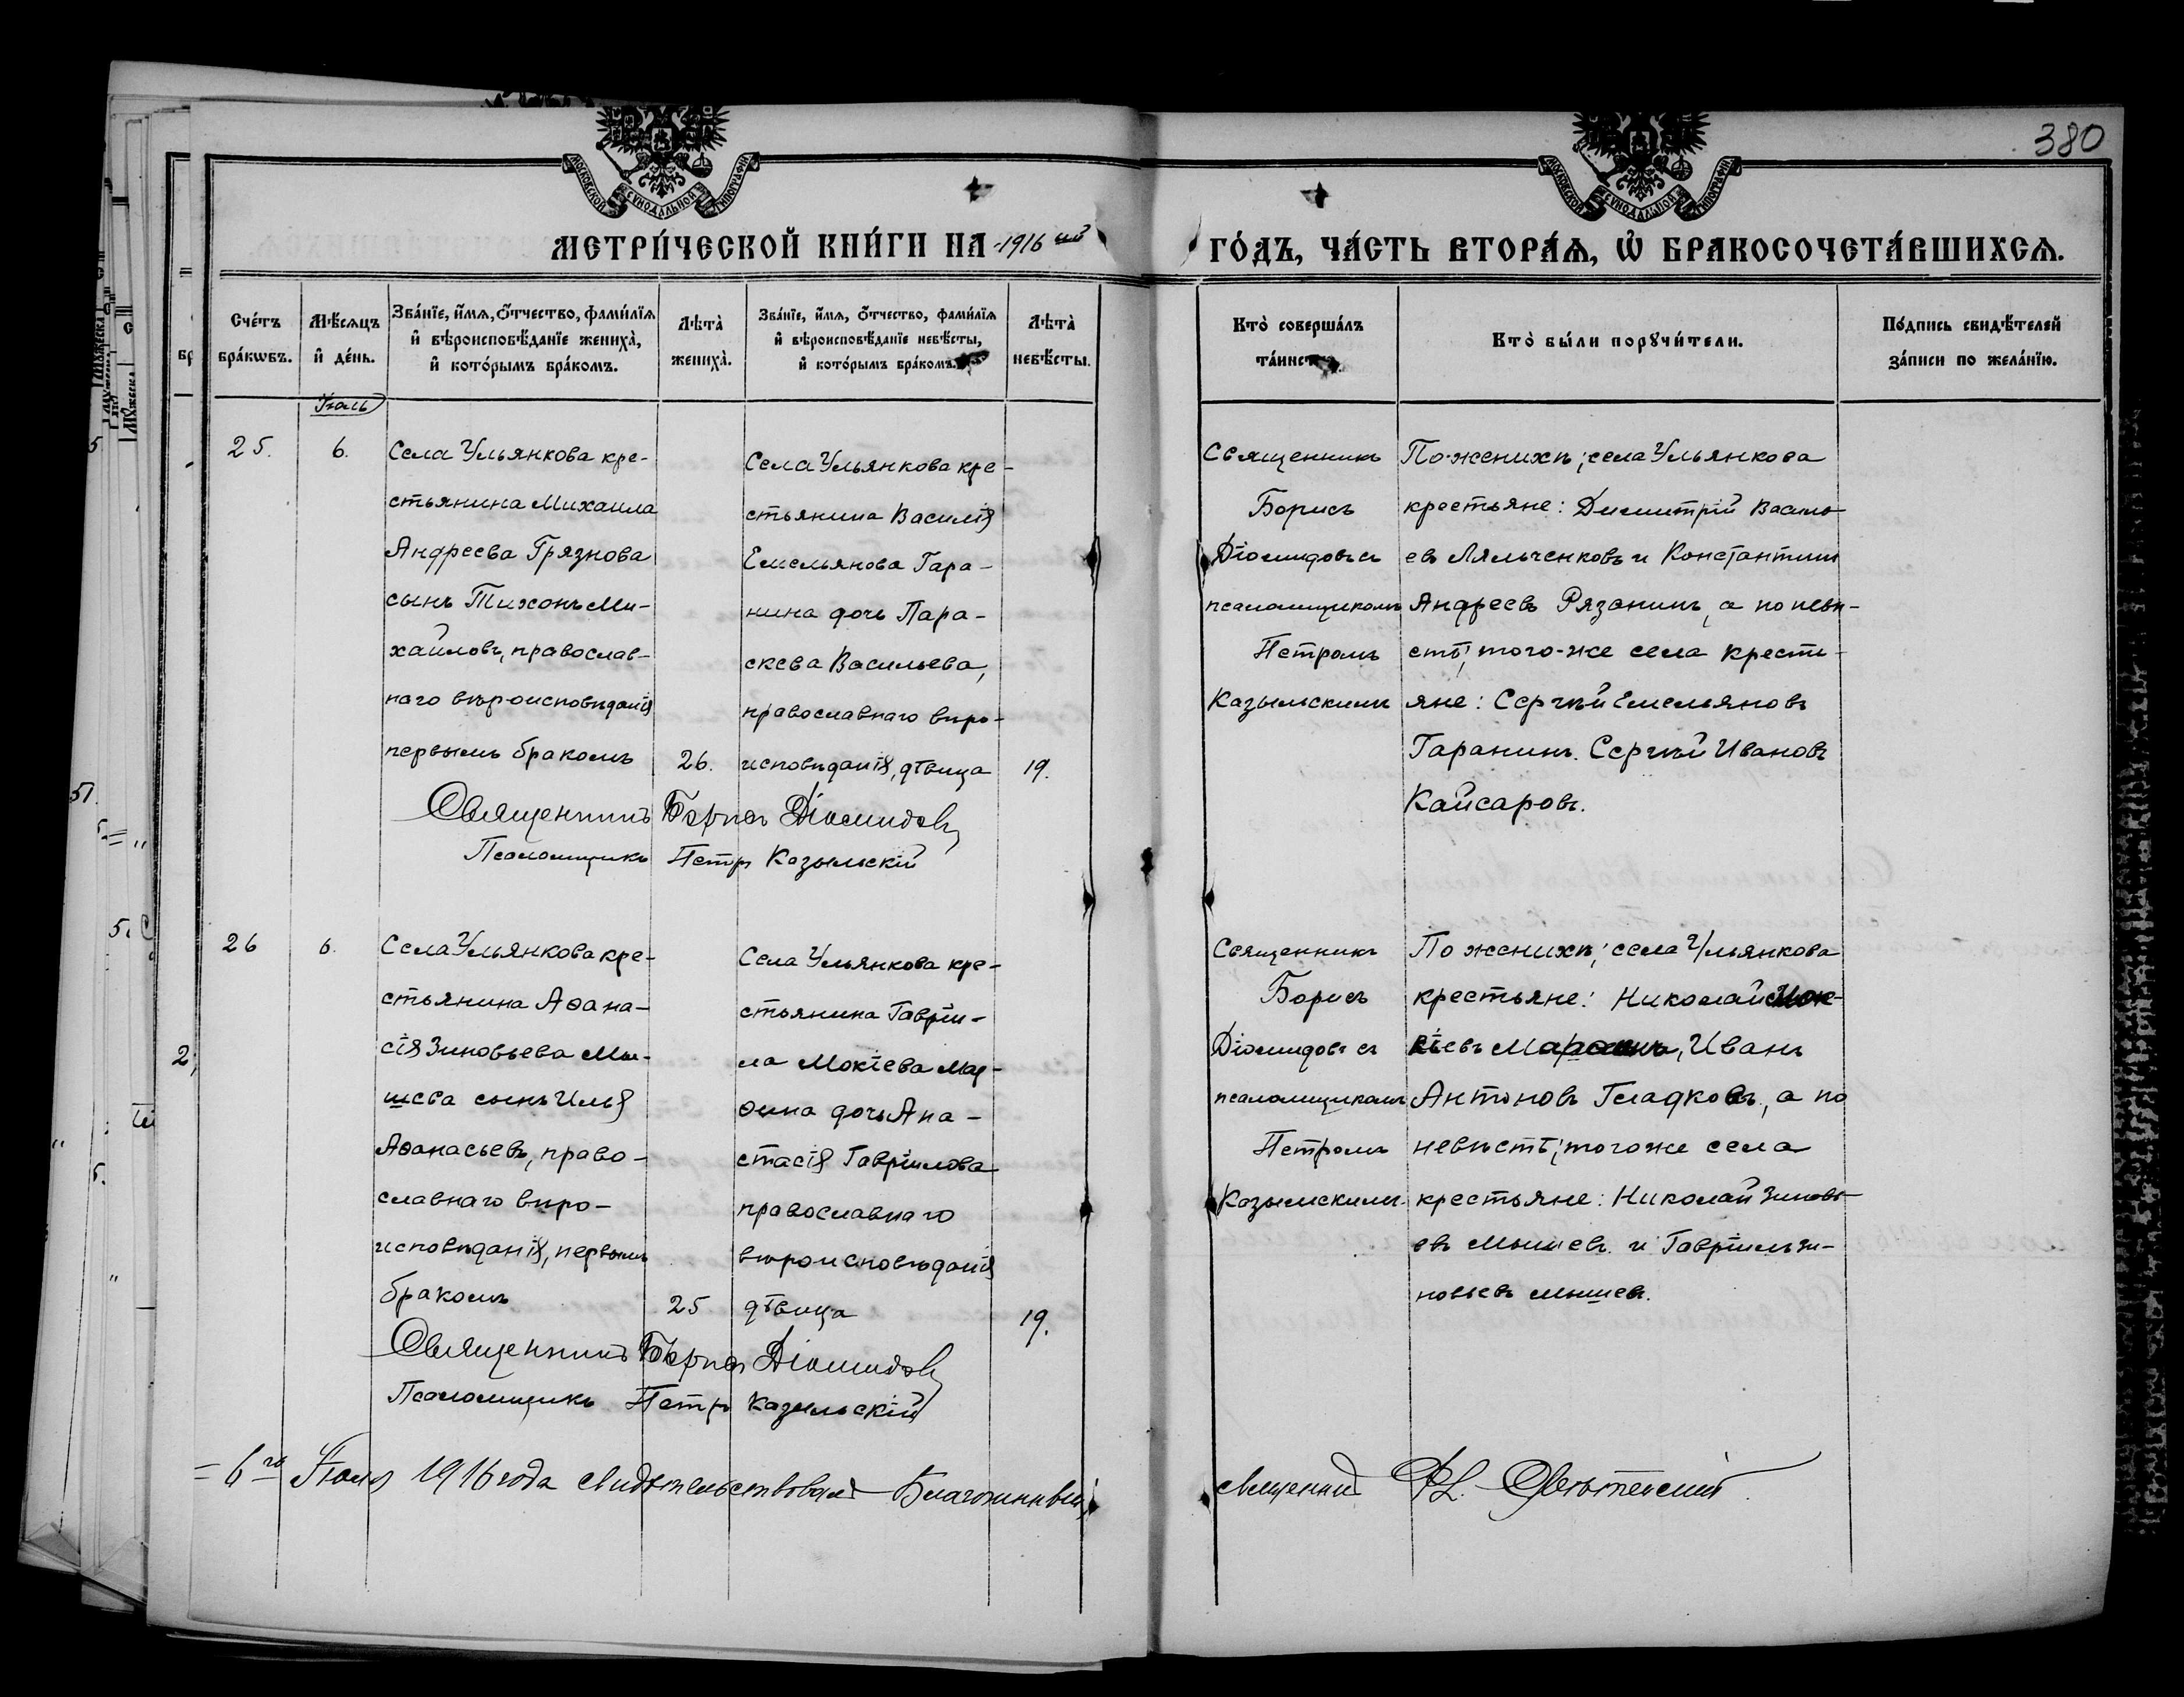 380
МОСКОВСКОЙ СѴНОДАЛЬНОЙ ТИПОГРАФІИ
МОСКОВСКОЙ СѴНОДАЛЬНОЙ ТИПОГРАФІИ
МЕТРИ́ЧЕСКОЙ КНИ́ГИ НА 1916ый ГО́ДЪ, ЧА́СТЬ ВТОРА́Ѧ, Ѽ БРАКОСОЧЕТА́ВШИХСѦ.
Сче́тъ бра́кѡвъ.
Мѣ́сѧцъ и҆ де́нь.
Зва́нїе, и҆́мѧ, ѻ҆́тчество, фами́лїѧ и҆ вѣроисповѣ́данїе жениха̀, и҆ кото́рымъ бра́комъ.
Лѣта̀ жениха̀.
Зва́нїе, и҆́мѧ, ѻ҆́тчество, фами́лїѧ и҆ вѣроисповѣ́данїе невѣ́сты, и҆ кото́рымъ бра́комъ.
Лѣта̀ невѣ́сты.
Кто̀ соверша́лъ
Кто̀ бы́ли порꙋчи́тели.
По́дпись свидѣ́телей за́писи по жела́нїю.
Іюль
25.
6.
Села Ульянкова кре-
стьянина Михаила
Андреева Грязнова
сынъ Тихонъ Ми-
хайловъ, православ-
наго вѣроисповѣданія
первымъ бракомъ
26.
Села Ульянкова кре-
стьянина Василія
Емельянова Гара-
нина дочь Пара-
скева Васильева,
православнаго вѣро-
исповѣданія, дѣвица
19.
Священникъ
Борисъ
Діомидовъ съ
псаломщикомъ
Петромъ
Казыльскимъ
По женихѣ; села Ульянкова
крестьяне: Димитрій Василь-
евъ Ляльченковъ и Константинъ
Андреевъ Рязанинъ, а по невѣ-
стѣ; того-же села кресть-
яне: Сергѣй Емельяновъ
Гаранинъ. Сергѣй Ивановъ
Кайсаровъ.
Священникъ Борисъ Діомидовъ
Псаломщикъ Петръ Казыльскій
26
6.
Села Ульянкова кре-
стьянина Аѳана-
сія Зиновьева Мы-
шева сынъ Илья
Аѳанасьевъ, право-
славнаго вѣро-
исповѣданія, первымъ
бракомъ
25
Села Ульянкова кре-
стьянина Гаврии-
ла Мокіева Мар-
ѳина дочь Ана-
стасія Гавріилова
православнаго
вѣроисповѣданія
дѣвица
19.
Священникъ
Борисъ
Діомидовъ съ
псаломщикомъ
Петромъ
Казыльскимъ
По женихѣ; села Ульянкова
крестьяне: Николай Мок-
іевъ Иванъ
Антоновъ Гладковъ, а по
невѣстѣ; того же села
крестьяне: Николай Зиновь-
евъ Мышевъ и Гавріилъ Зи-
новьевъ Мышевъ.
Священникъ Борисъ Діомидовъ
Псаломщикъ Петръ Казыльскій
6го Іюля 1916 года свидѣтельствовалъ Благочинный, священникъ